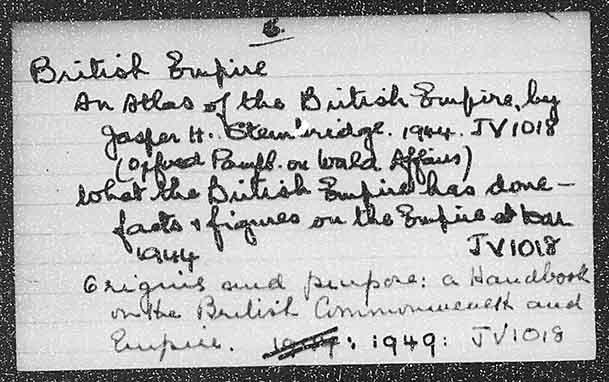 6.
British Empire
An Atlas of the British Empire, by
Jasper H. Stembridge. 1944. JV1018
(Oxford Pamph. on World Affairs)
What the British Empire has done –
facts & figures on the Empire at war
1944 JV1018
Origins and purpose: a Handbook
on the British Commonwealth and
Empire. : 1949: JV1018